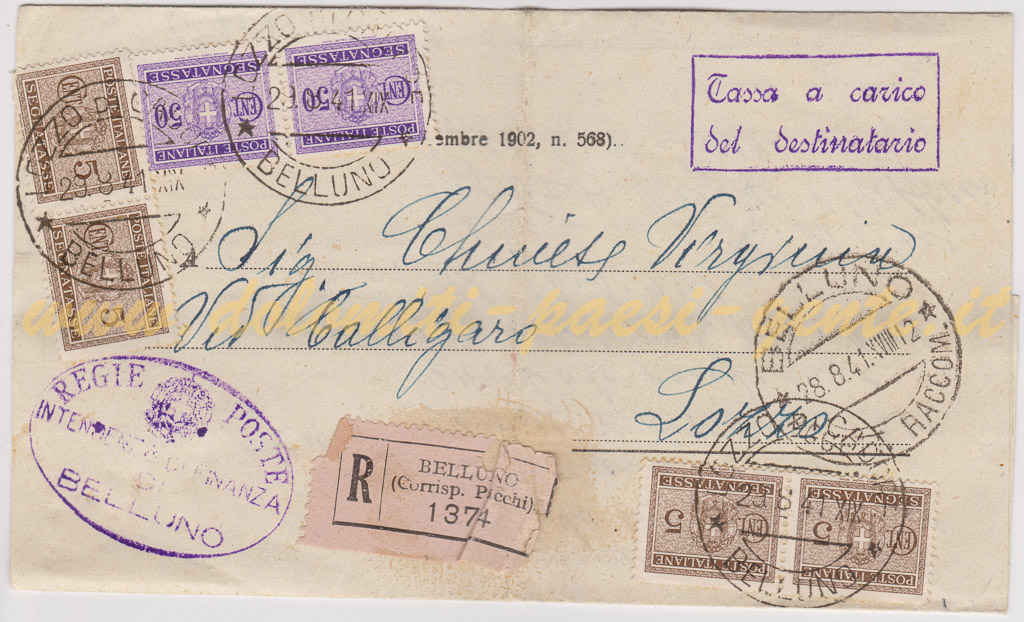 Tassa a carico
del destinatario
embre 1902, n. 568).
SEGNATASSE
CENT 50
POSTE ITALIANE
SEGNATASSE
CENT 50
POSTE ITALIANE
POSTE ITALIANE
CENT 5
SEGNATASSE
POSTE ITALIANE
CENT 5
SEGNATASSE
29.8.41 XIX
BELLUNO
29.8.41 XIX
BELLUNO
Sig
Virginia
Via Calligaro
Lozzo
www.dolomiti-paesi-gente.it
BELLUNO
28.8.41.XVIIII 12
RACCOM.
REGIE POSTE
INTENDENZA DI FINANZA
DI
BELLUNO
R
BELLUNO
(Corrisp. Pacchi)
1374
SEGNATASSE
CENT 5
POSTE ITALIANE
SEGNATASSE
CENT 5
POSTE ITALIANE
29 8 41 XIX
BELLUNO